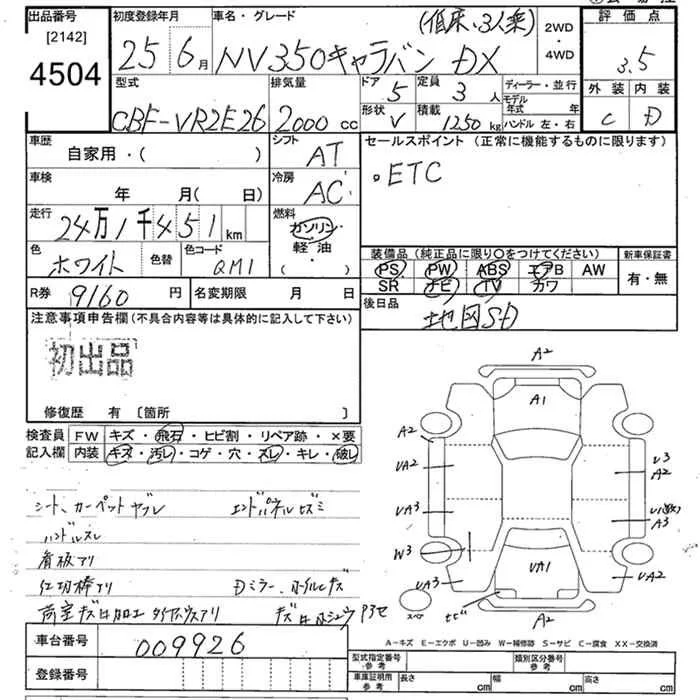 出品番号 [2142] 4504
初度登録年月 25 6月
車名・グレード (低床・3人乗)
NV350キャラバン DX
2WD・4WD
評価点 3.5
外装 C 内装 D
型式 CBF-VR2E26
排気量 2000 cc
ドア 5 定員 3人
形状 V 積載 1250 kg
ディーラー・並行
モデル年式 年
ハンドル 左・右
車歴 自家用・( )
シフト AT
セールスポイント (正常に機能するものに限ります)
。ETC
車検 年 月( 日)
冷房 AC
走行 24万1千451 km
燃料 ガソリン・軽油・( )
色 ホワイト 色替 色コード QM1
装備品 (純正品に限り○をつけてください)
PS PW ABS エアB AW
SR ナビ TV カワ
新車保証書 有・無
R券 9160 円 名変期限 月 日
後日品 地図SD
注意事項申告欄 (不具合内容等は具体的に記入して下さい)
初出品
修復歴 有 [箇所 ]
検査員記入欄
FW キズ・飛石・ヒビ割・リペア跡・×要
内装 キズ・汚レ・コゲ・穴・スレ・キレ・破レ
シート、カーペットヤブレ
ハンドルスレ
看板アリ
Dミラー、
A2
A1
A2
UA2
UA3
W3
UA3
U3
A2
A3
UA2
UA1
A2
A-キズ E-エクボ U-凹み W-補修跡 S-サビ C-腐食 XX-交換済
車台番号 009926
登録番号
型式指定番号 参考
類別区分番号 参考
車庫証明用 参考
長さ cm 幅 cm 高さ cm